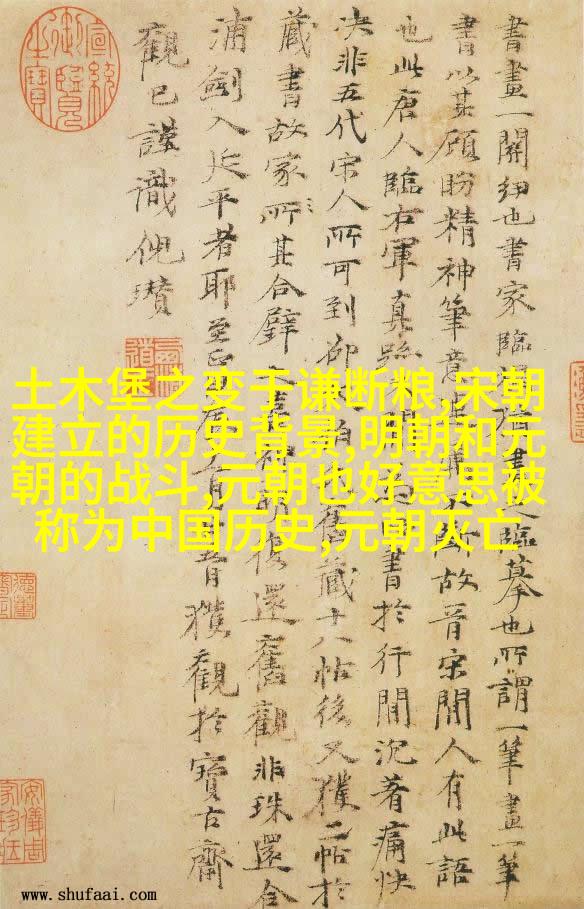 書畫一關紐也書家臨書之臨摹也所謂一筆畫一筆
書以其顧盼精神筆意故晉宋間人有此語
也此唐人臨右軍真書於行間沉着痛快
决非五代宋人所可到舊藏十八帖後又獲二帖於
蔵書故家所其合璧還舊觀非珠還合
浦劍入延平者耶至獲觀於寶古齋
觀已謹識倪瓚
宣統御覽之寶
土木堡之变于谦断粮,宋朝
建立的历史背景,明朝和元
朝的战斗,元朝也好意思被
称为中国历史,元朝灭亡
www.shufaai.com